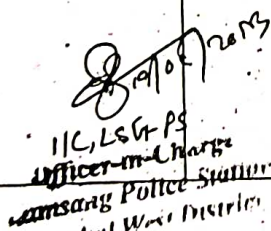 I/C, LSG PS
Officer-in-Charge
amsang Police Station
West District